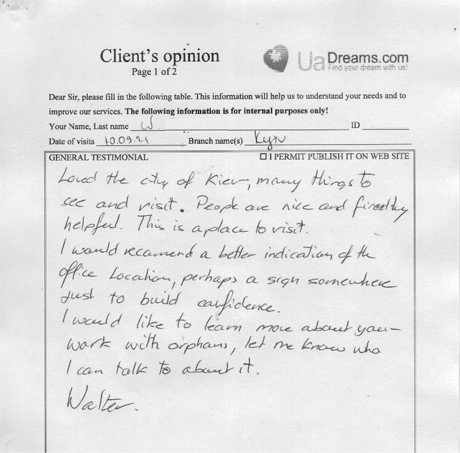 Client's opinion
Page 1 of 2
UaDreams.com
Find your dream with us!
Dear Sir, please fill in the following table. This information will help us to understand your needs and to
improve our services. The following information is for internal purposes only!
Your Name, Last name W ID
Date of visits 10.09.21 Branch name(s) Kyiv
GENERAL TESTIMONIAL ☐ I PERMIT PUBLISH IT ON WEB SITE
Loved the city of Kiev, many things to
see and visit. People are nice and
helpful. This is a place to visit.
I would recamend a better indication of the
office location, perhaps a sign somewhere
just to build confidence.
I would like to learn more about your
work with orphans, let me know who
I can talk to about it.
Walter.